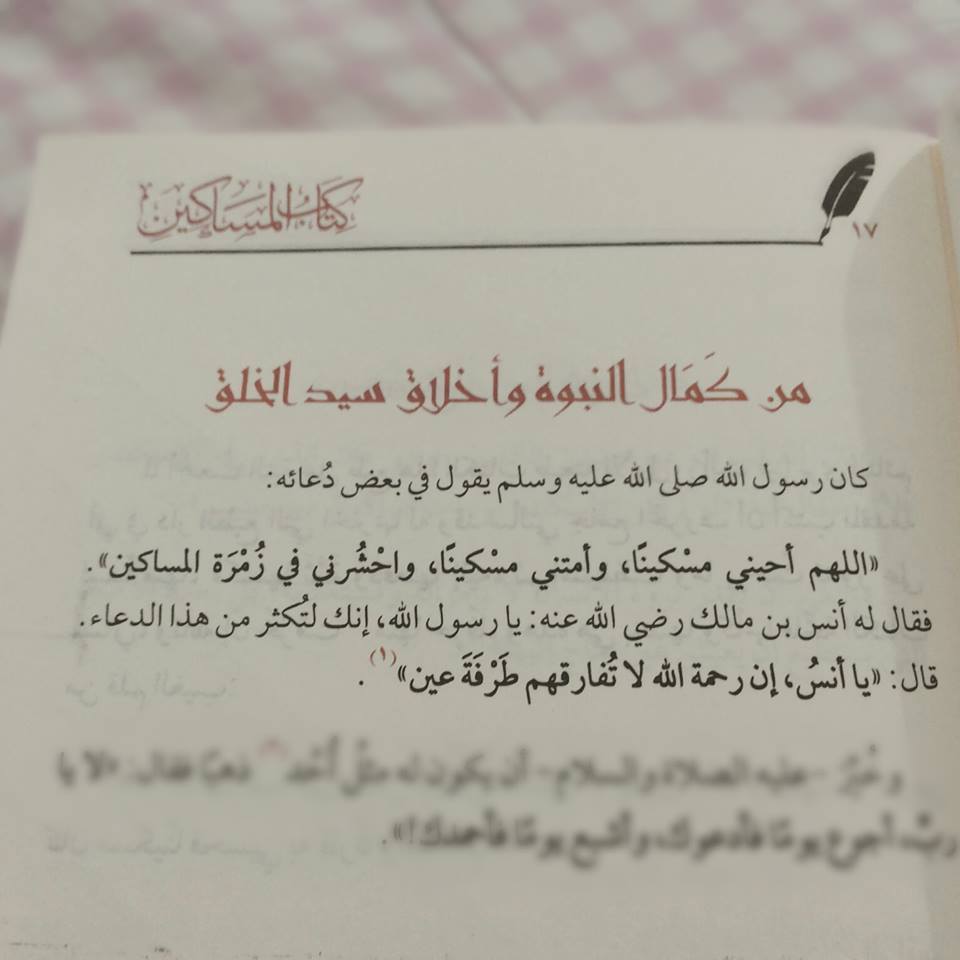 كتاب المساكين
١٧
من كَمَال النبوة وأخلاق سيد الخلق
كان رسول الله صلى الله عليه وسلم يقول في بعض دُعائه:
«اللهم أحيني مسْكينًا، وأمتني مسْكينًا، واحْشُرني في زُمْرَة المساكين».
فقال له أنس بن مالك رضي الله عنه: يا رسول الله، إنك لتُكثر من هذا الدعاء.
قال: «يا أنسُ، إن رحمة الله لا تُفارقهم طَرْفَةَ عين»(١).
وخُيِّرَ -عليه الصلاة والسلام- أن يكون له مثلُ أُحُد ذهبًا فقال: «لا يا
ربّ، أجوع يومًا فأدعوك، وأشبع يومًا فأحمدك!».